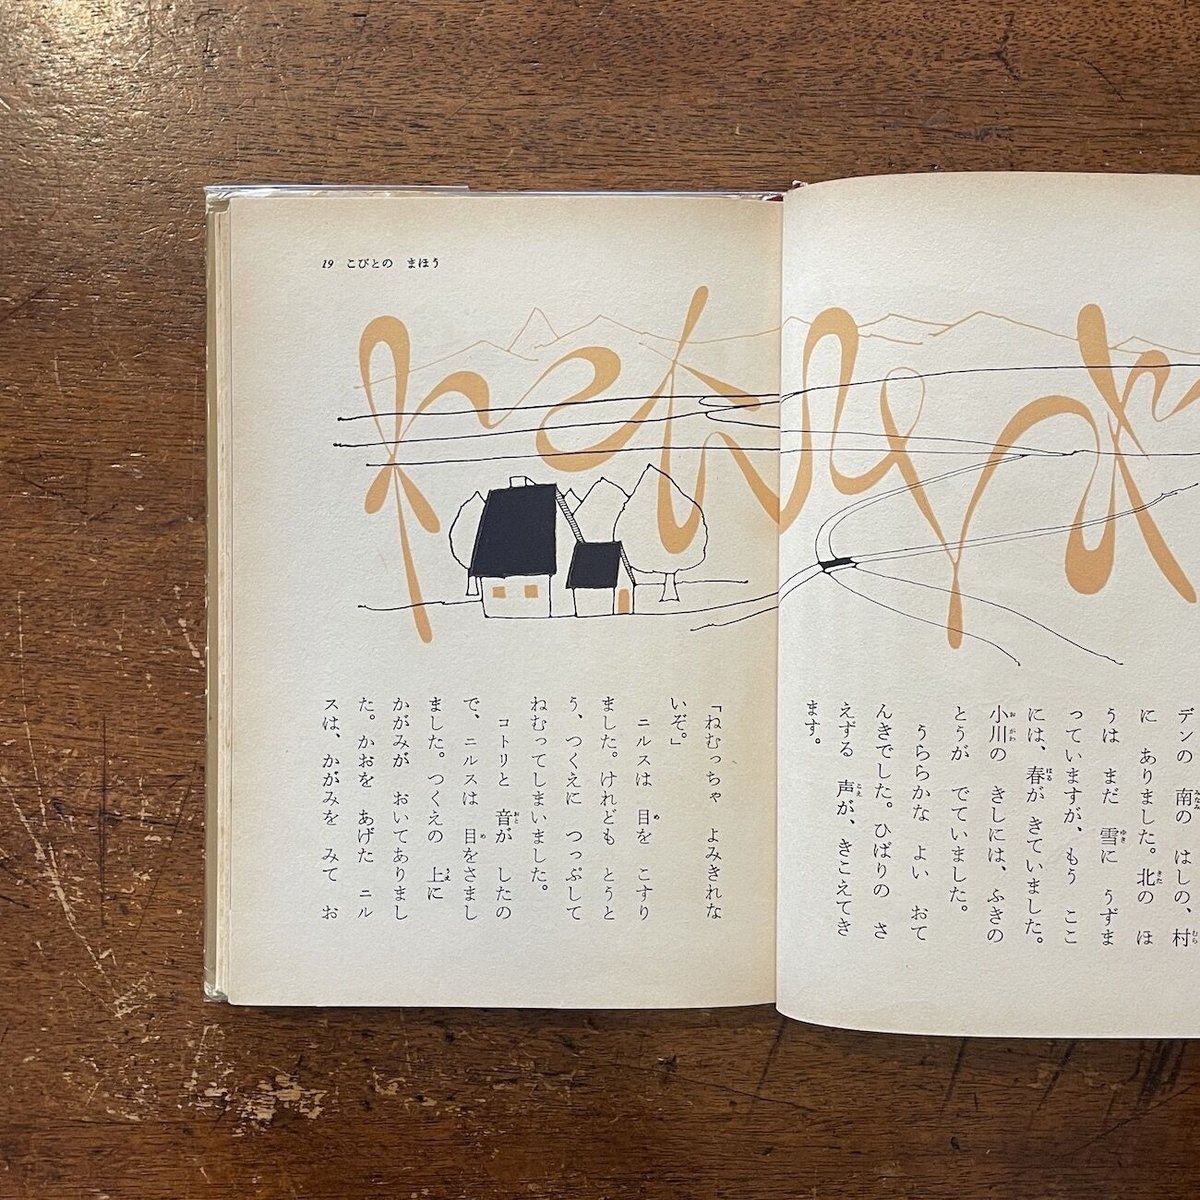 19 こびとの まほう
デンの 南の はしの、村
に ありました。北の ほ
うは まだ 雪に うずま
っていますが、もう ここ
には、春が きていました。
小川の きしには、ふきの
とうが でていました。
うららかな よい おて
んきでした。ひばりの さ
えずる 声が、きこえてき
ます。
「ねむっちゃ よみきれな
いぞ。」
ニルスは 目を こすり
ました。けれども とうと
う、つくえに つっぷして
ねむってしまいました。
コトリと 音が したの
で、ニルスは 目をさまし
ました。つくえの 上に
かがみが おいてありまし
た。かおを あげた ニル
スは、かがみを みて お